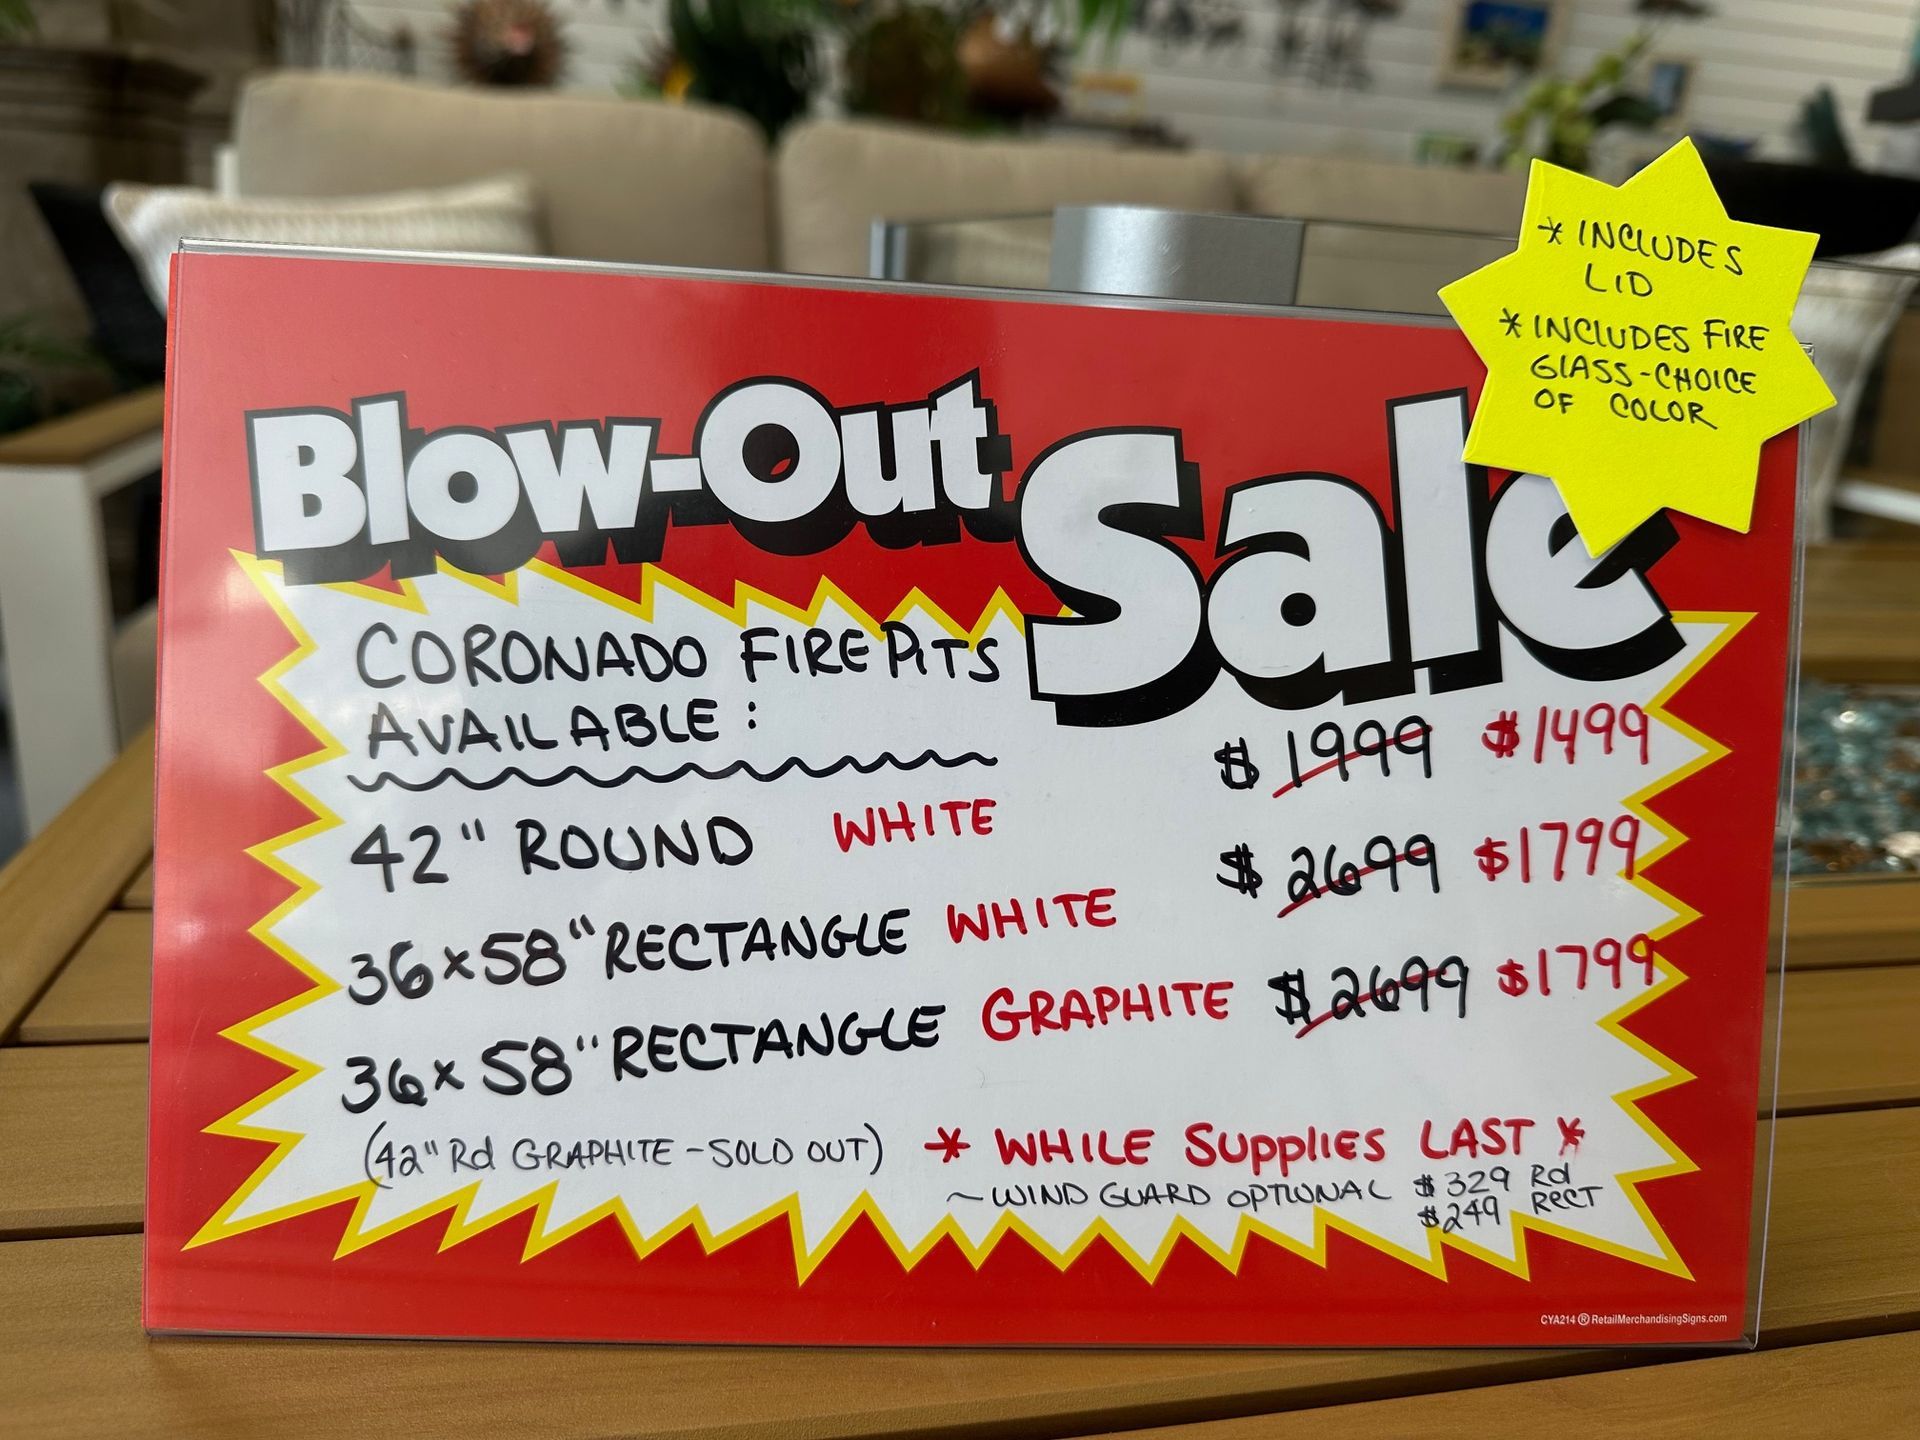 * INCLUDES
LID
* INCLUDES FIRE
GLASS-CHOICE
OF COLOR
Blow-Out Sale
CORONADO FIRE PITS
AVAILABLE:
42" ROUND WHITE $1999 $1499
36x58" RECTANGLE WHITE $2699 $1799
36x58" RECTANGLE GRAPHITE $2699 $1799
(42" Rd GRAPHITE - SOLD OUT) * WHILE SUPPLIES LAST *
~ WIND GUARD OPTIONAL $329 Rd
$249 RECT
CYA214 ® RetailMerchandisingSigns.com